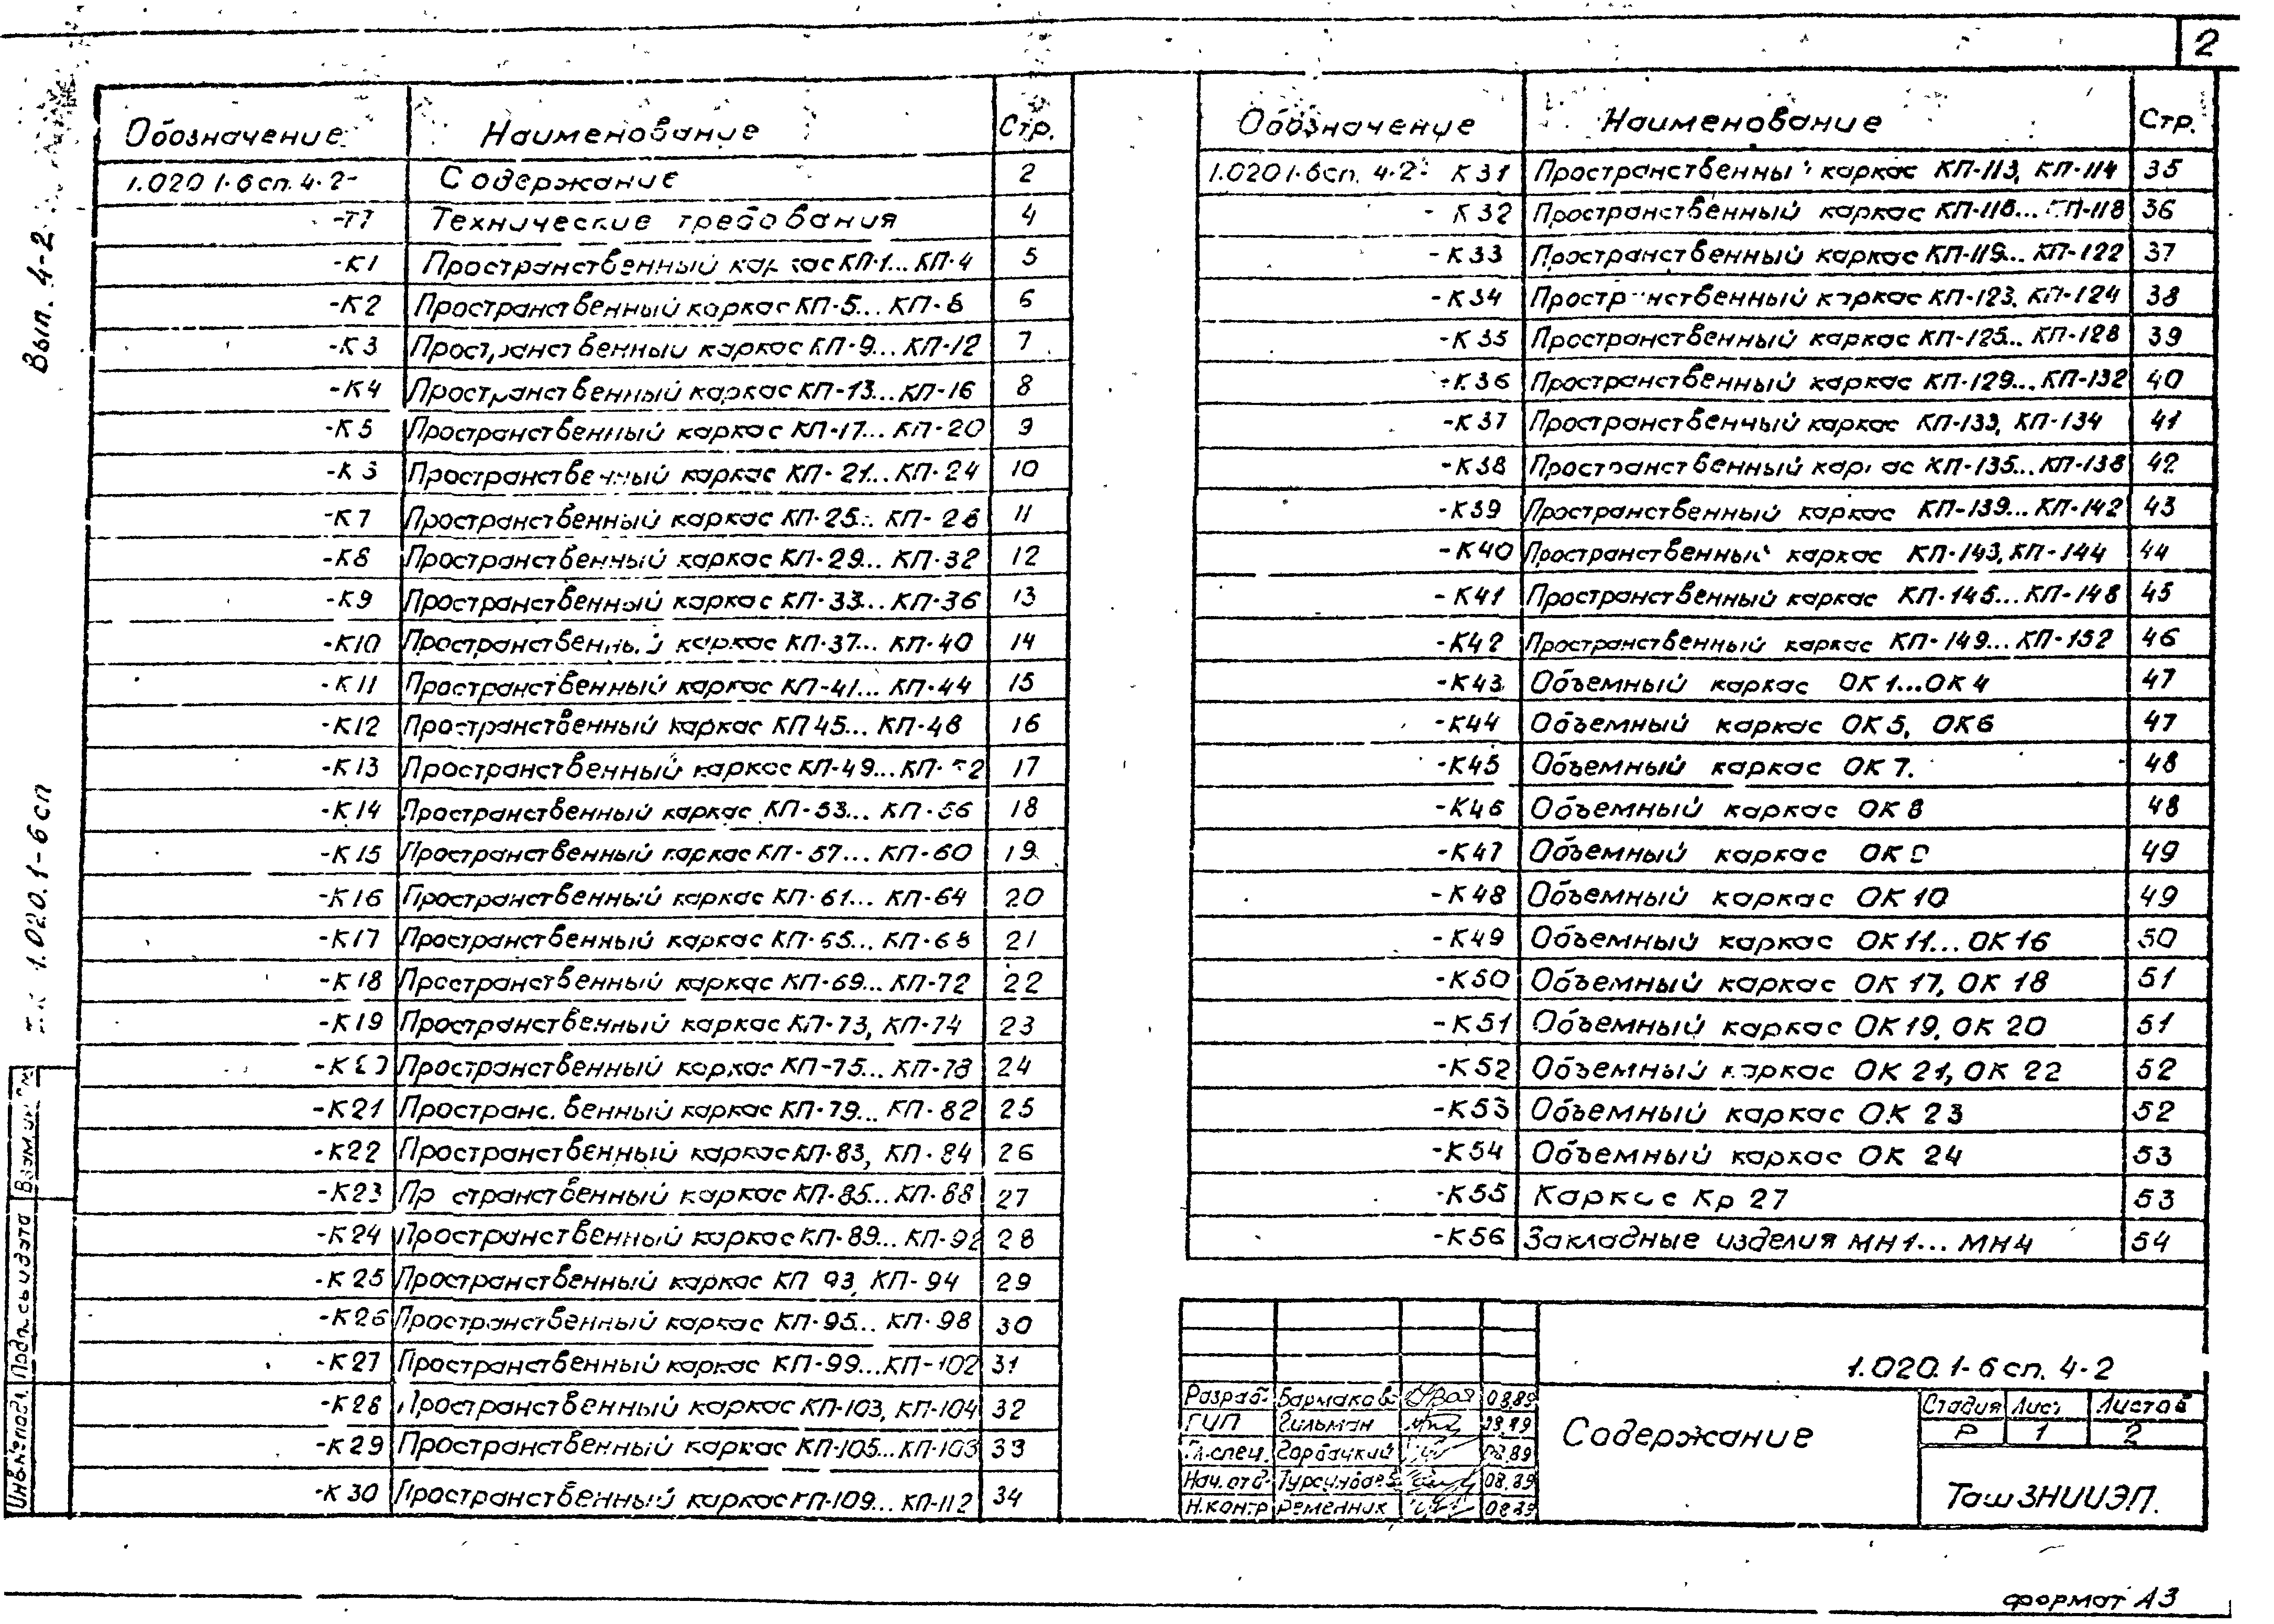 2
Обозначение Наименование Стр.
1.020 1-6сп. 4-2- Содержание 2
-ТТ Технические требования 4
-К1 Пространственный каркас КП-1... КП-4 5
-К2 Пространственный каркас КП-5... КП-8 6
-К3 Пространственный каркас КП-9... КП-12 7
-К4 Пространственный каркас КП-13... КП-16 8
-К5 Пространственный каркас КП-17... КП-20 9
-К Пространственный каркас КП-21... КП-24 10
-К7 Пространственный каркас КП-25... КП-28 11
-К8 Пространственный каркас КП-29... КП-32 12
-К9 Пространственный каркас КП-33... КП-36 13
-К10 Пространственный каркас КП-37... КП-40 14
-К11 Пространственный каркас КП-41... КП-44 15
-К12 Пространственный каркас КП 45... КП-48 16
-К13 Пространственный каркас КП-49... КП-52 17
-К14 Пространственный каркас КП-53... КП-56 18
-К15 Пространственный каркас КП-57... КП-60 19
-К16 Пространственный каркас КП-61... КП-64 20
-К17 Пространственный каркас КП-65... КП-68 21
-К18 Пространственный каркас КП-69... КП-72 22
-К19 Пространственный каркас КП-73, КП-74 23
-К20 Пространственный каркас КП-75... КП-78 24
-К21 Пространственный каркас КП-79... КП-82 25
-К22 Пространственный каркас КП-83, КП-84 26
-К23 Пространственный каркас КП-85... КП-88 27
-К24 Пространственный каркас КП-89... КП-92 28
-К25 Пространственный каркас КП 93, КП-94 29
-К26 Пространственный каркас КП-95... КП-98 30
-К27 Пространственный каркас КП-99...КП-102 31
-К28 Пространственный каркас КП-103, КП-104 32
-К29 Пространственный каркас КП-105... КП-108 33
-К30 Пространственный каркас КП-109... КП-112 34
Обозначение Наименование Стр.
1.020 1-6сп. 4-2- К31 Пространственный каркас КП-113, КП-114 35
- К32 Пространственный каркас КП-115... КП-118 36
-К33 Пространственный каркас КП-119... КП-122 37
-К34 Пространственный каркас КП-123, КП-124 38
-К35 Пространственный каркас КП-125... КП-128 39
-К36 Пространственный каркас КП-129... КП-132 40
-К37 Пространственный каркас КП-133, КП-134 41
-К38 Пространственный каркас КП-135... КП-138 42
-К39 Пространственный каркас КП-139... КП-142 43
-К40 Пространственный каркас КП-143, КП-144 44
-К41 Пространственный каркас КП-145... КП-148 45
-К42 Пространственный каркас КП-149... КП-152 46
-К43 Объемный каркас ОК 1...ОК 4 47
-К44 Объемный каркас ОК 5, ОК6 47
-К45 Объемный каркас ОК 7. 48
-К46 Объемный каркас ОК 8 48
-К47 Объемный каркас ОК 9 49
-К48 Объемный каркас ОК 10 49
-К49 Объемный каркас ОК 11... ОК 16 50
-К50 Объемный каркас ОК 17, ОК 18 51
-К51 Объемный каркас ОК 19, ОК 20 51
-К52 Объемный каркас ОК 21, ОК 22 52
-К53 Объемный каркас ОК 23 52
-К54 Объемный каркас ОК 24 53
-К55 Каркас Кр 27 53
-К56 Закладные изделия МН1... МН4 54
1.020.1-6сп. 4-2
Разраб. Бармакова 08.89
ГИП Гильман 08.89
Гл.спец. Горбацкий 08.89
Нач. отд. 08.89
Н.контр Ременник 08.89
Содержание
Стадия Лист Листов
Р 1 2
ТашЗНИИЭП.
формат А3
Вып. 4-2
1.020.1-6сп
Взам.инв
Подпись и дата
Инв.№подл.